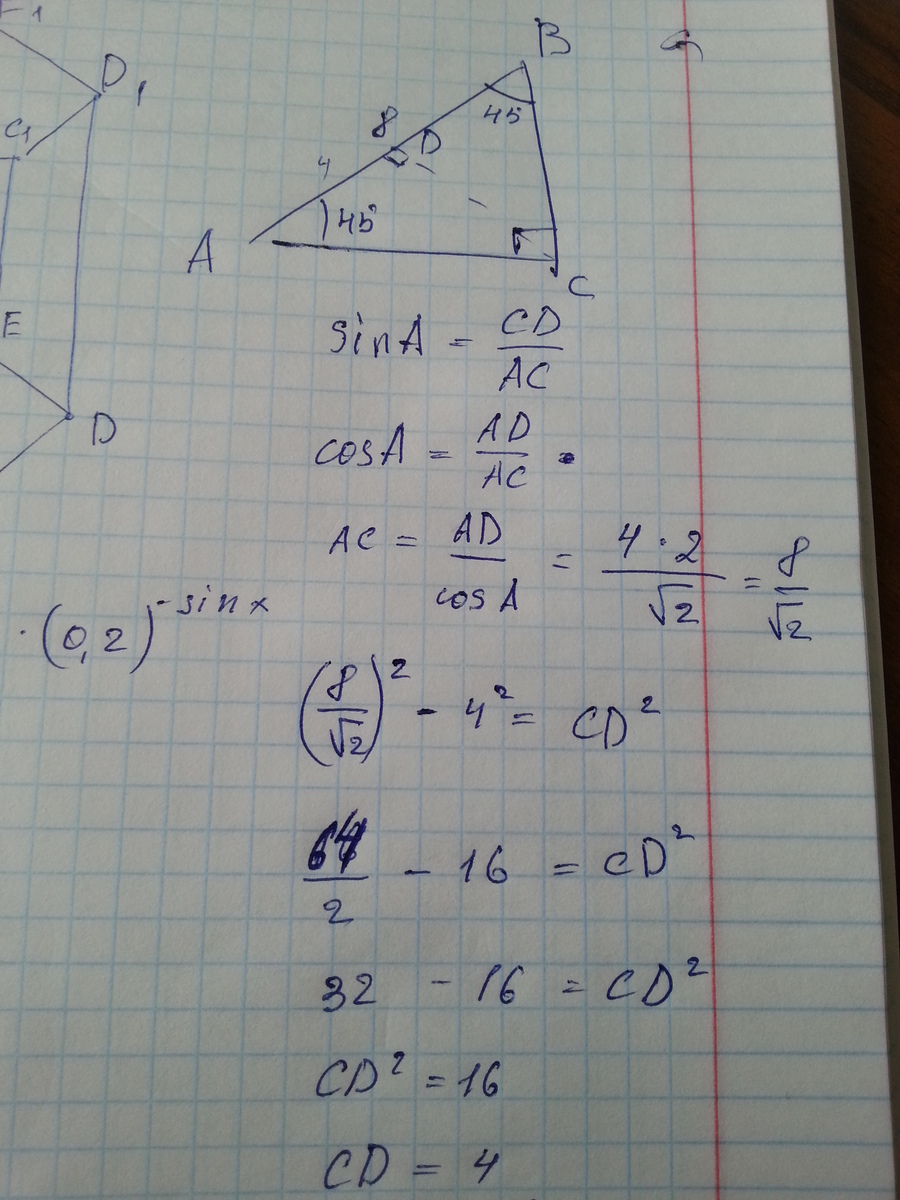 F₁
D₁
B
C₁
8
D
45
4
45°
A
C
sinA = CD/AC
E
cosA = AD/AC
D
AC = AD/cosA = 4·2/√2 = 8/√2
·(0,2)^(-sinx)
(8/√2)² - 4² = CD²
64/2 - 16 = CD²
32 - 16 = CD²
CD² = 16
CD = 4